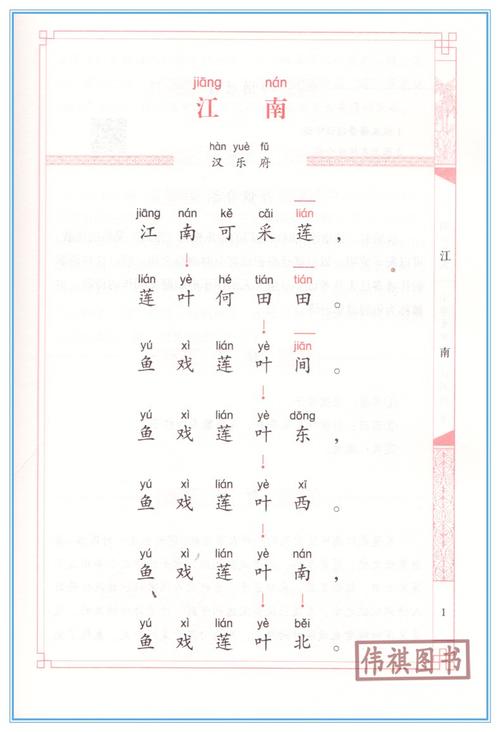 jiāng nán
江 南
hàn yuè fǔ
汉 乐 府
jiāng nán kě cǎi lián
江 南 可 采 莲，
lián yè hé tián tián
莲 叶 何 田 田。
yú xì lián yè jiān
鱼 戏 莲 叶 间。
yú xì lián yè dōng
鱼 戏 莲 叶 东，
yú xì lián yè xī
鱼 戏 莲 叶 西。
yú xì lián yè nán
鱼 戏 莲 叶 南，
yú xì lián yè běi
鱼 戏 莲 叶 北。
江南
1
伟祺图书